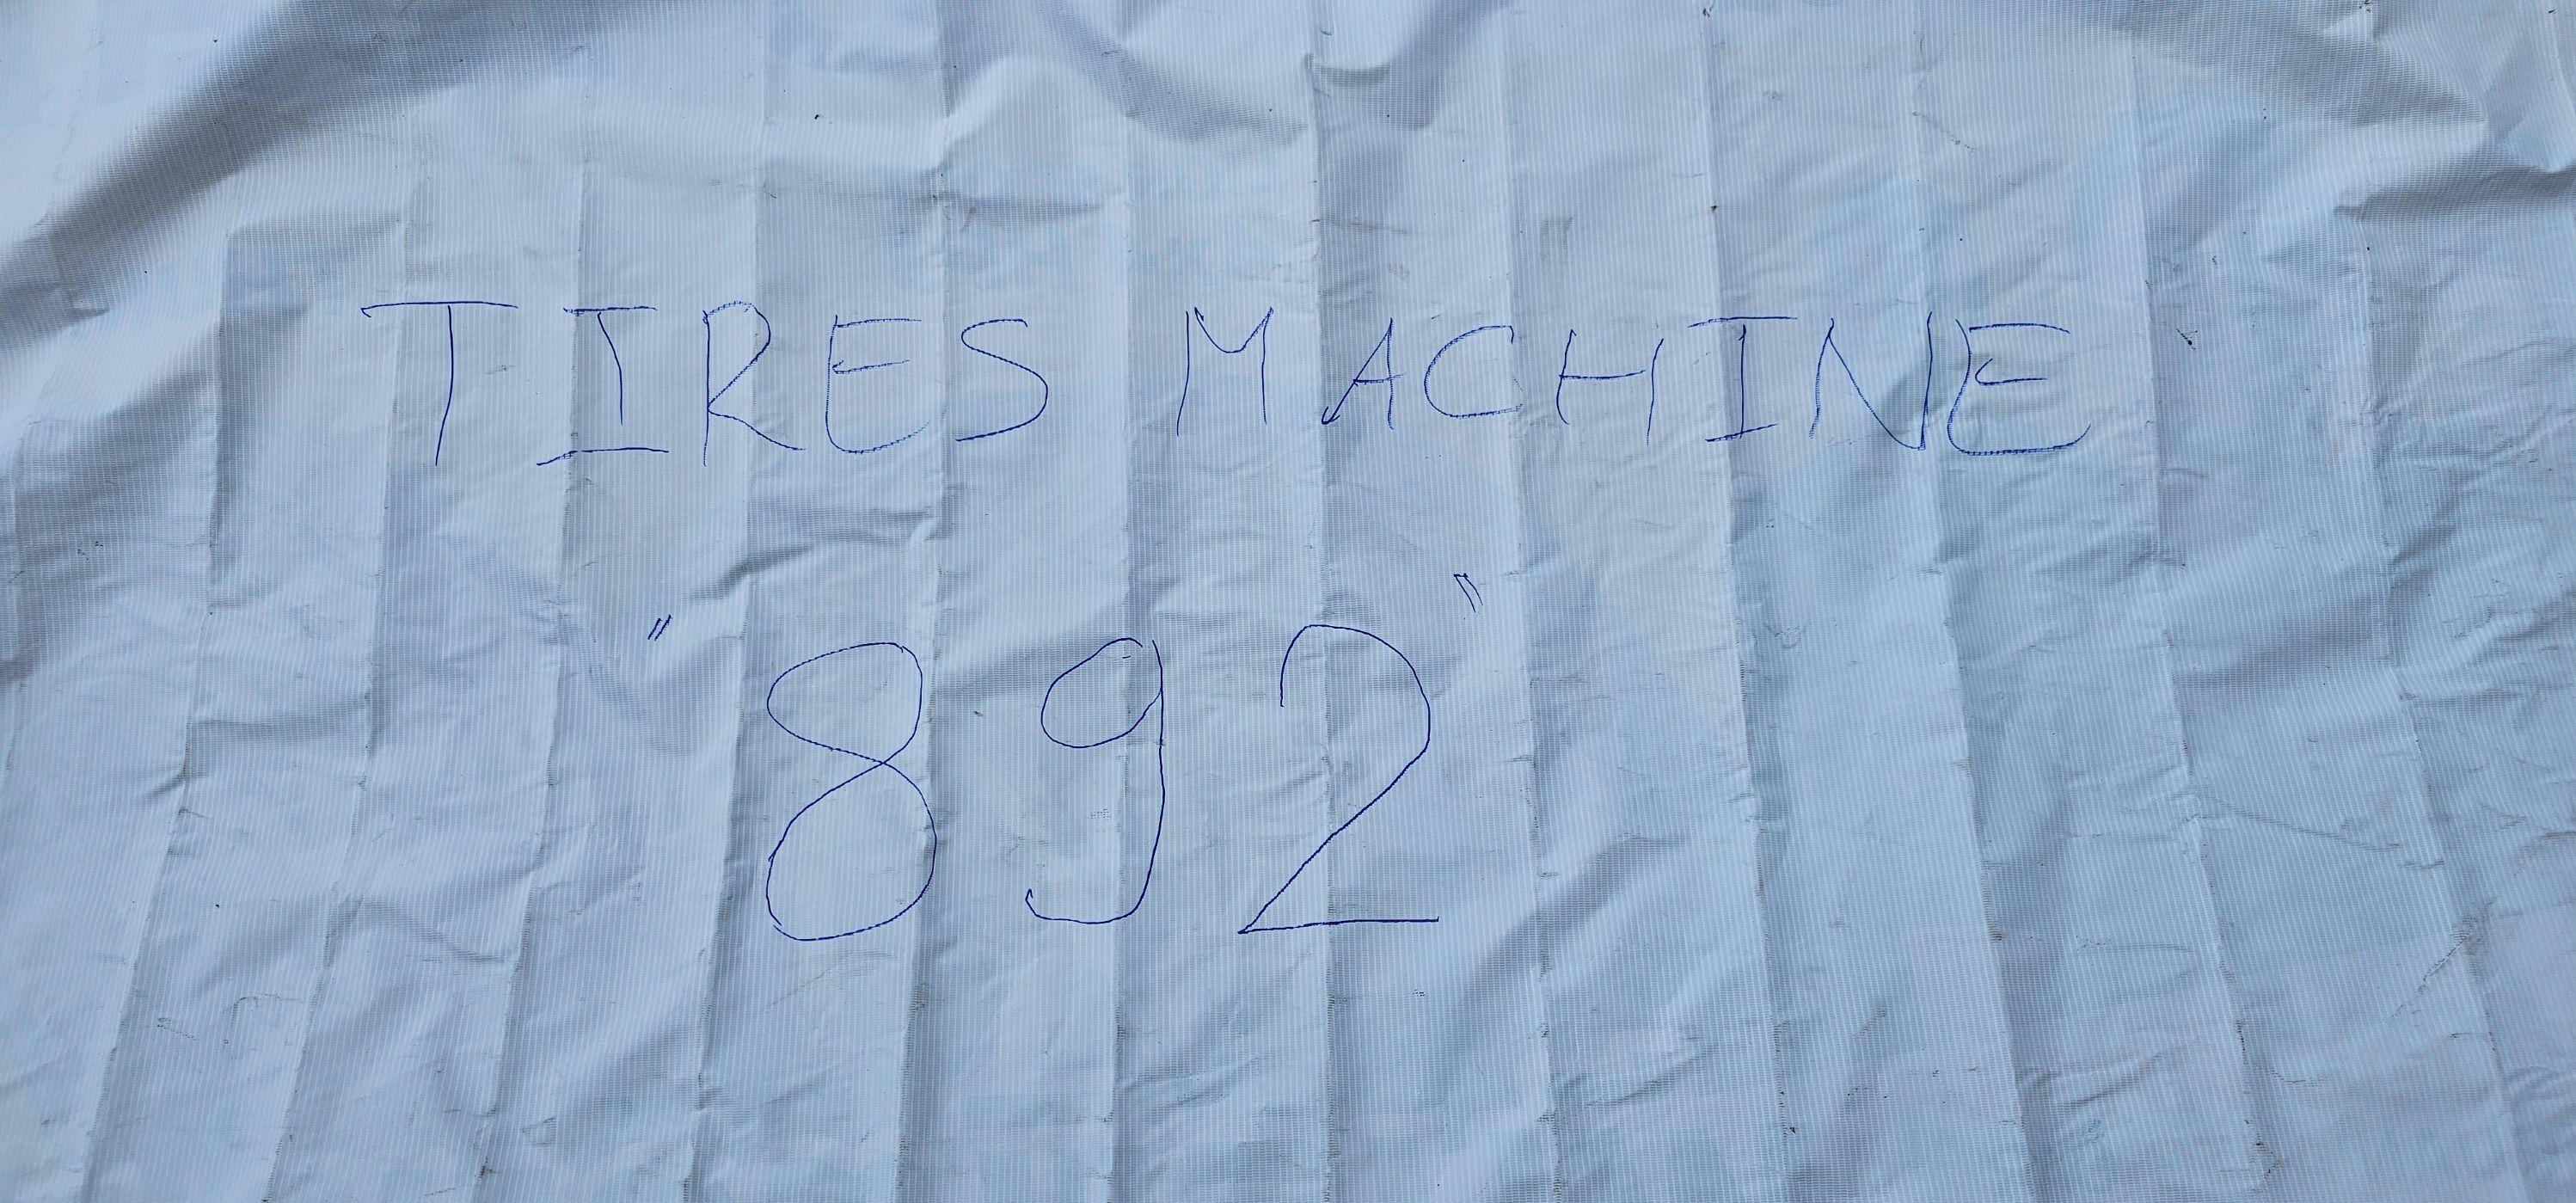 TIRES MACHINE
"892"